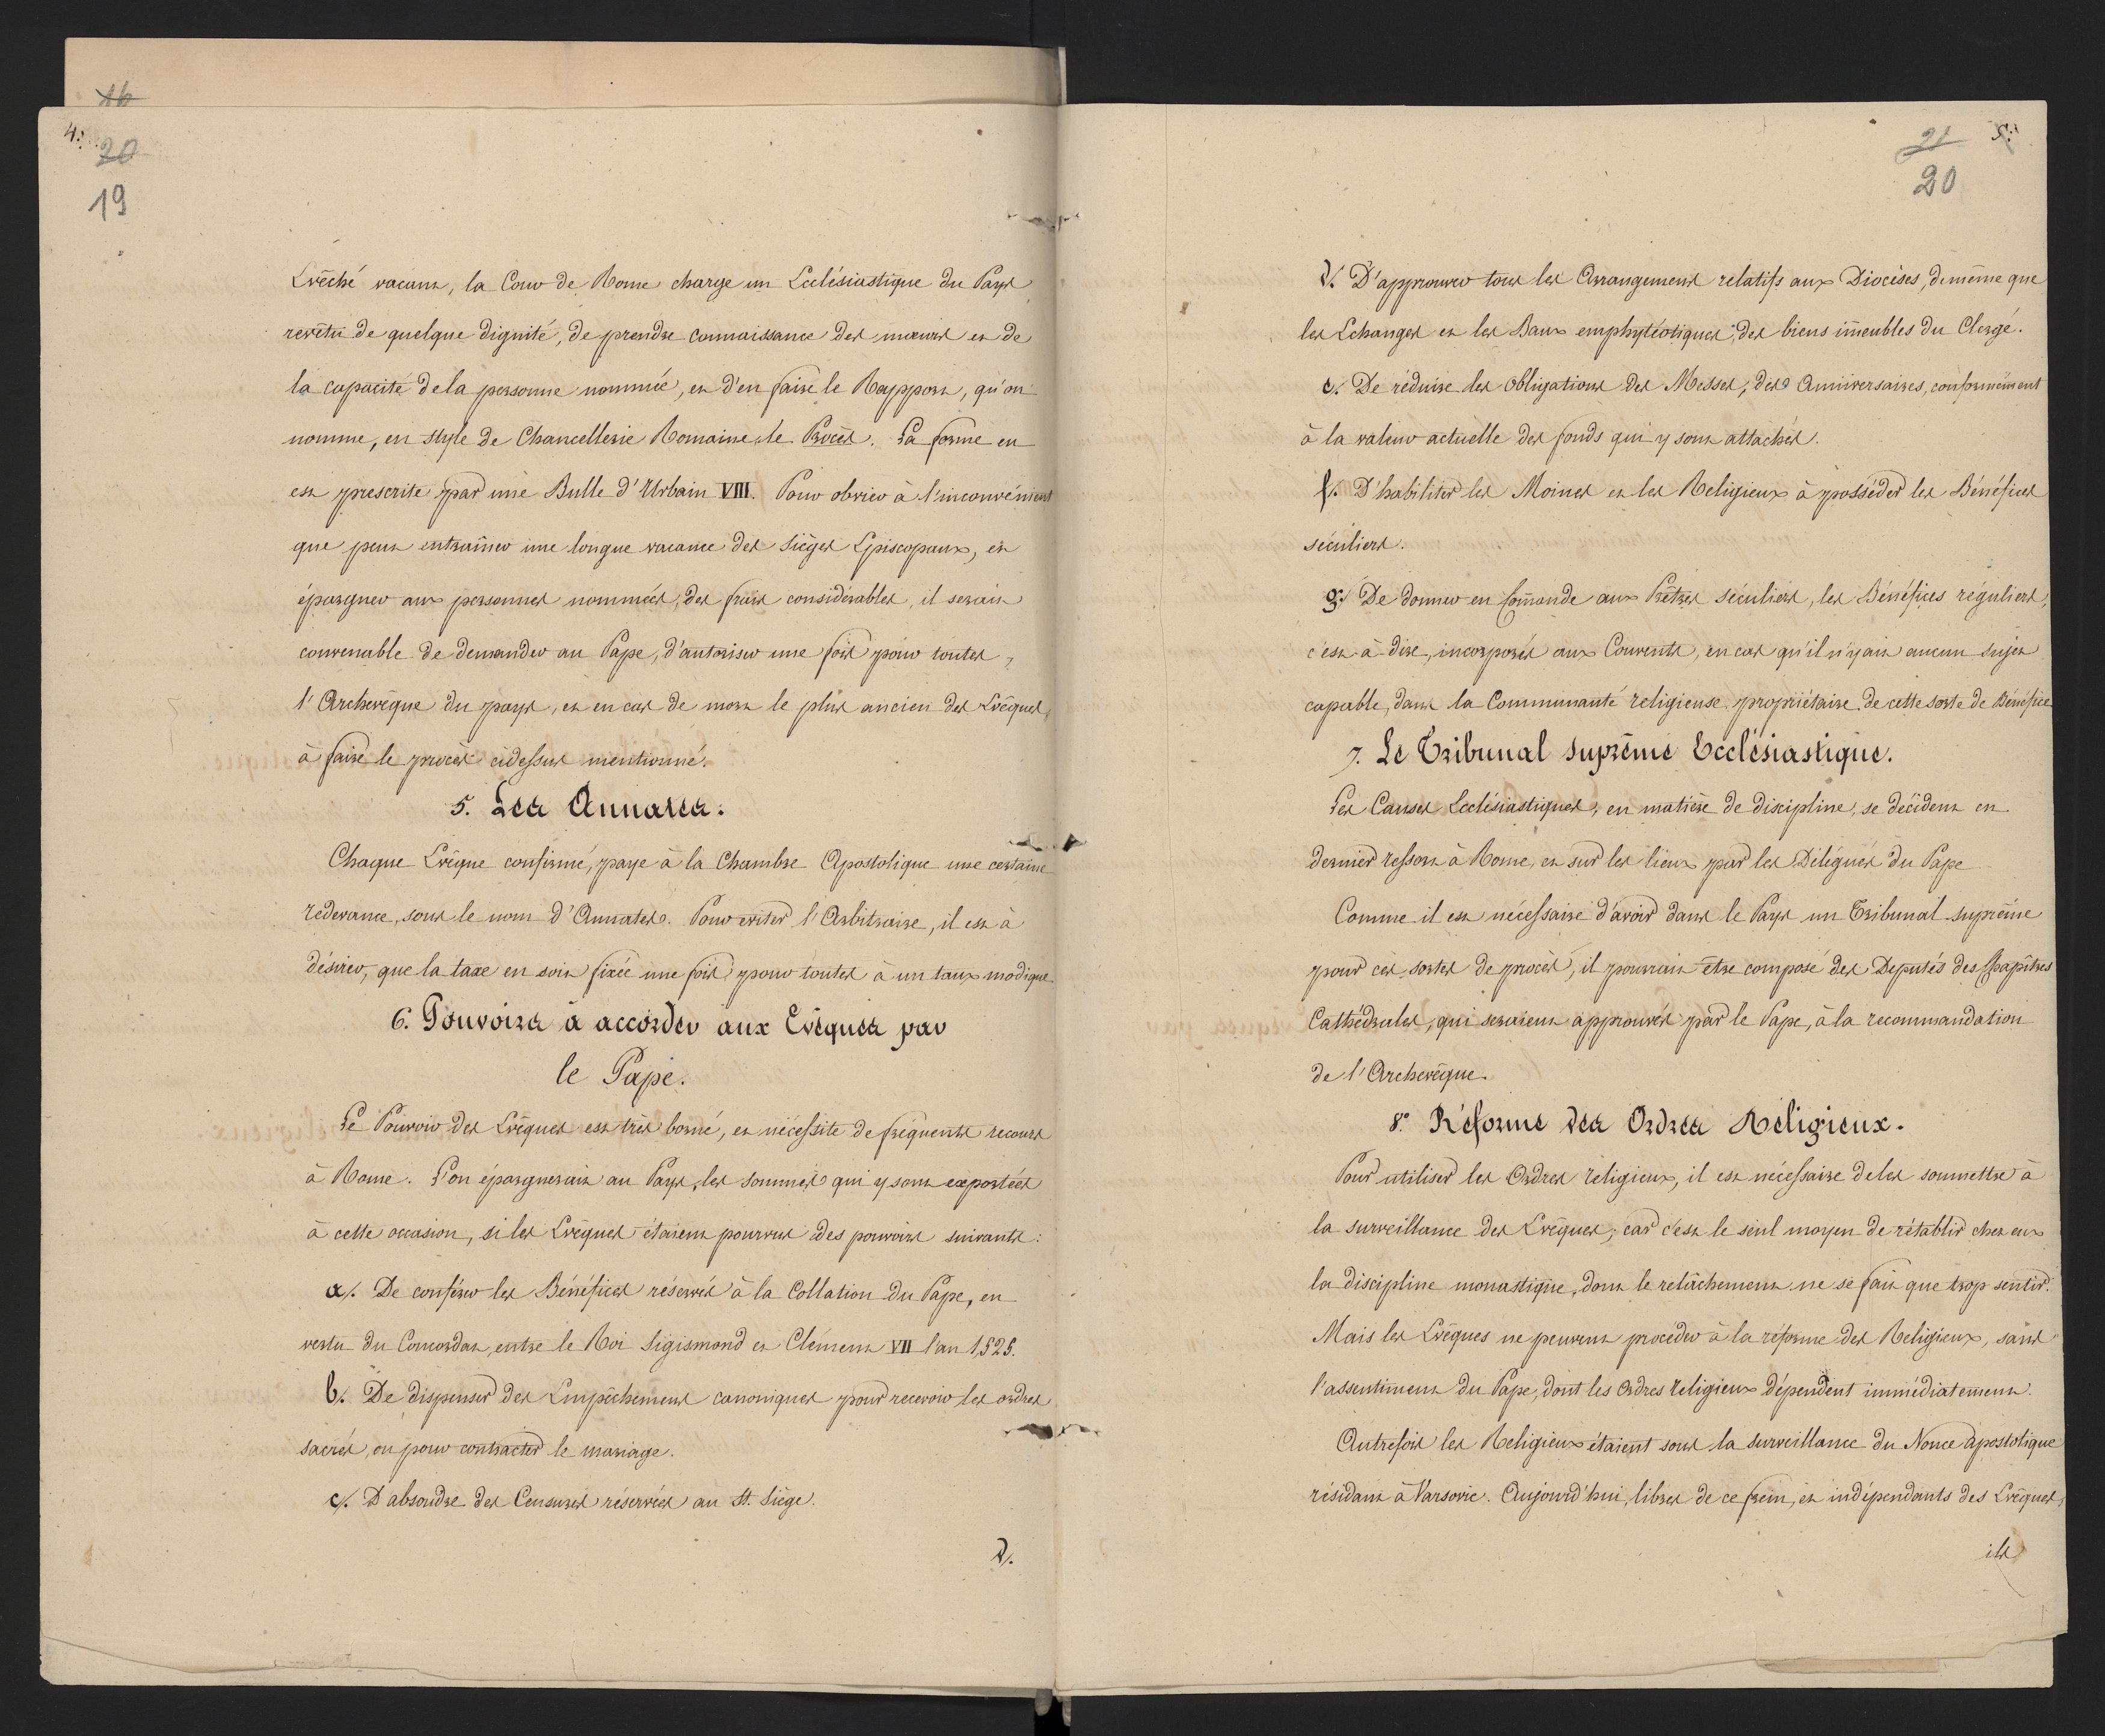 16
4.
20
19
Evêché vacant, la Cour de Rome charge un Ecclésiastique du Pays
revêtu de quelque dignité, de prendre connaissance des moeurs et de
la capacité de la personne nommée, et d'en faire le Rapport, qu'on
nomme, en style de Chancellerie Romaine, le Procès. La forme en
est prescrite par une Bulle d'Urbain VIII. Pour obvier à l'inconvénient
que peut entraîner une longue vacance des Sièges Episcopaux, et
épargner aux personnes nommées, des frais considérables, il serait
convenable de demander au Pape, d'autoriser une fois pour toutes,
l'Archevêque du pays, et en cas de mort le plus ancien des Evêques,
à faire le procès cidessus mentionné.
5. Les Annates.
Chaque Evêque confirmé, paye à la Chambre Apostolique une certaine
redevance, sous le nom d'Annates. Pour eviter l'Arbitraire, il est à
désirer, que la taxe en soit fixée une fois pour toutes à un taux modique.
6. Pouvoirs à accorder aux Evêques par
le Pape.
Le Pouvoir des Evêques est très borné, et nécessite de fréquents recours
à Rome. L'on épargnerait au Pays, les sommes qui y sont exportées
à cette occasion, si les Evêques étaient pourvus des pouvoirs suivants:
a/. De conférer les Bénéfices réservés à la Collation du Pape, en
vertu du Concordat, entre le Roi Sigismond et Clément VII l'an 1,525.
b/. De dispenser des Empêchements canoniques pour recevoir les ordres
sacrés, ou pour contracter le mariage.
c/. D'absoudre des Censures réservées au St. Siège.
d.
5.
21
20
d/. D'approuver tous les Arrangements relatifs aux Diocèses, de même que
les Echanges et les Baux emphytéotiques, des biens im̄eubles du Clergé.
e/. De réduire les obligations des Messes, des Anniversaires, conformément
à la valeur actuelle des fonds qui y sont attachés.
f/. D'habiliter les Moines et les Religieux à posséder les Bénéfices
séculiers.
g/. De donner en Com̄ande aux Prêtres séculiers, les Bénéfices réguliers,
c'est à dire, incorporés aux Couvents, en cas qu'il n'y ait aucun sujet
capable, dans la Communauté religieuse, propriétaire de cette sorte de Bénéfice
7. Le Tribunal suprême Ecclésiastique.
Les Causes Ecclésiastiques, en matière de discipline, se décident en
dernier ressort à Rome, et sur les lieux par les Délégués du Pape
Comme il est nécessaire d'avoir dans le Pays un Tribunal suprême
pour ces sortes de procès, il pourrait être composé des Deputés des Chapitres
Cathédrales, qui seraient approuvés par le Pape, à la recommandation
de l'Archevêque.
8. Réforme des Ordres Réligieux.
Pour utiliser les Ordres religieux, il est nécessaire de les soumettre à
la surveillance des Evêques; car c'est le seul moyen de rétablir chez eux
la discipline monastique, dont le relâchement ne se fait que trop sentir.
Mais les Evêques ne peuvent procéder à la réforme des Religieux, sans
l'assentiment du Pape, dont les Ordres religieux dépendent immédiatement.
Autrefois les Religieux étaient sous la surveillance du Nonce Apostolique
résidant à Varsovie. Aujourd'hui, libres de ce frein, et indépendants des Evêques,
ils